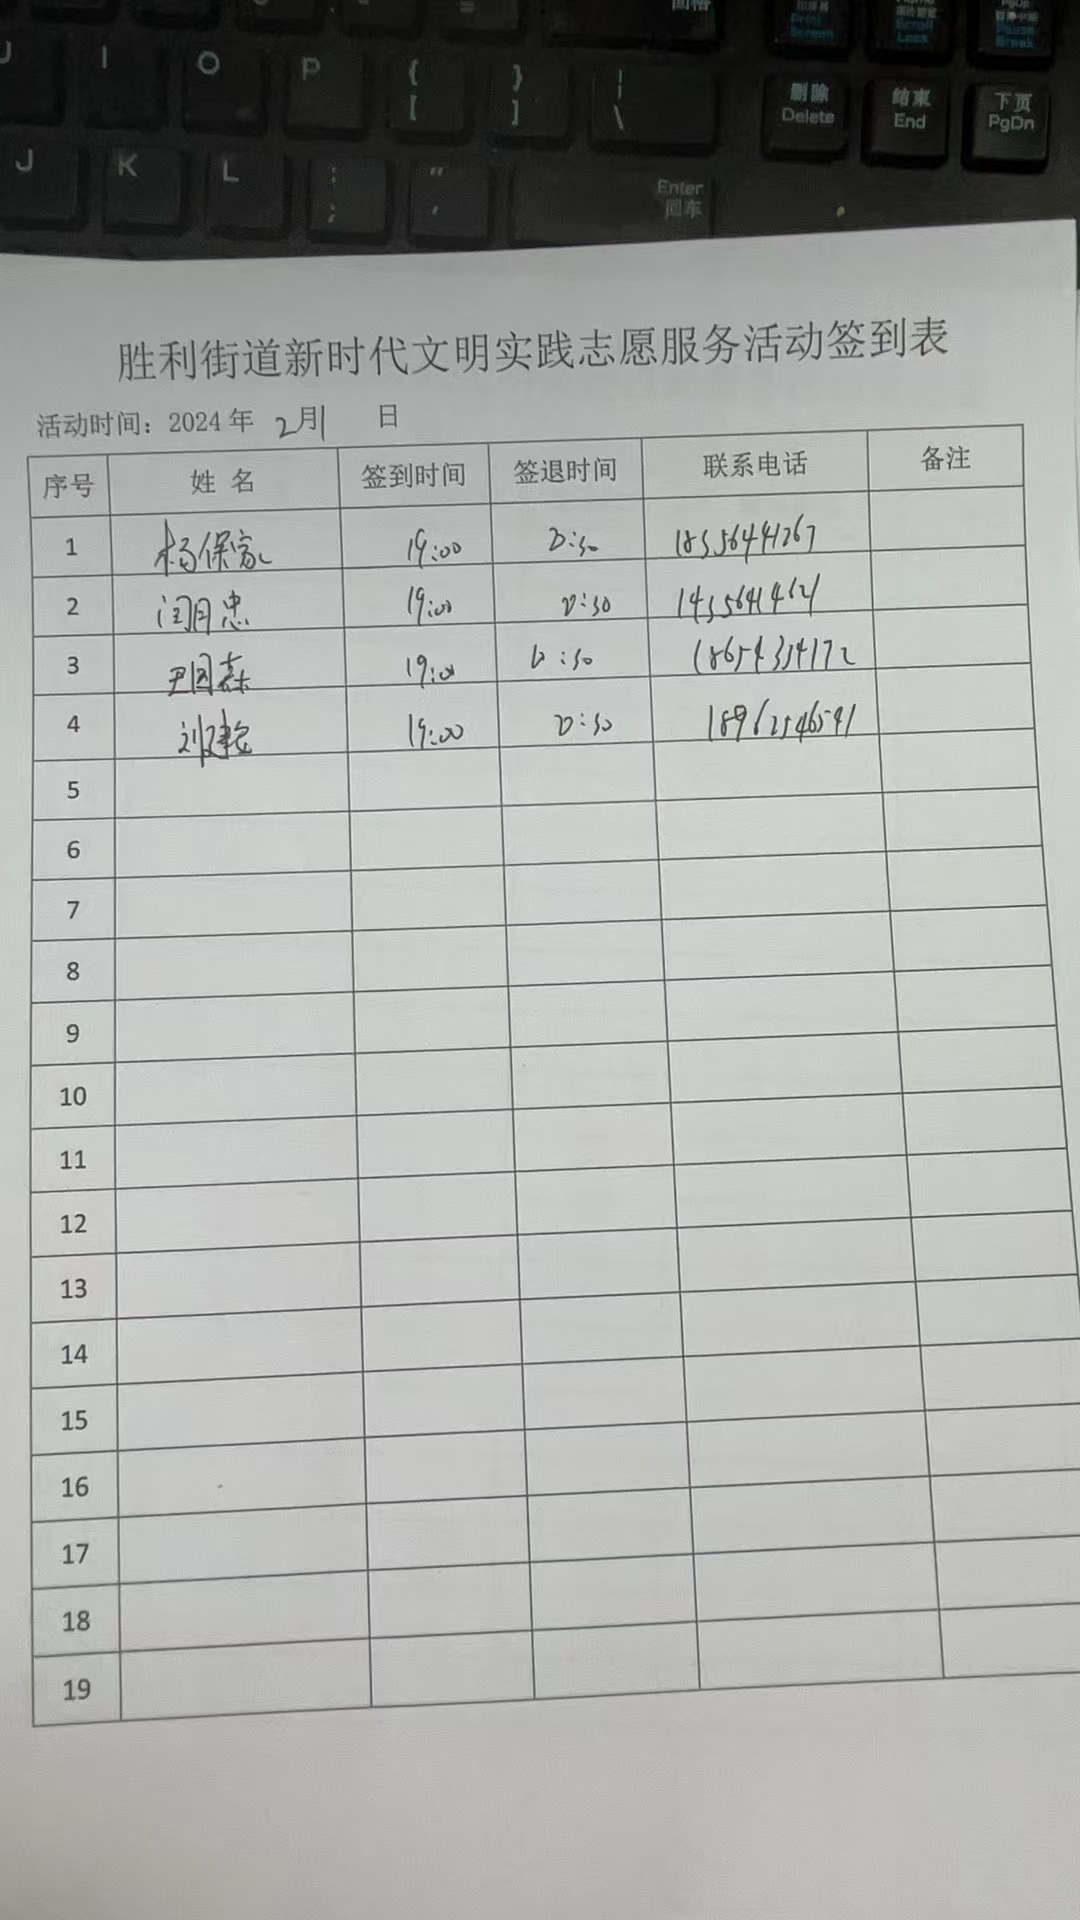 J I O P { [ } ] | \
删除 Delete 结束 End 下页 PgDn
J K L : ; " ' Enter 回车
胜利街道新时代文明实践志愿服务活动签到表
活动时间：2024 年 2月1 日
序号 姓 名 签到时间 签退时间 联系电话 备注
1 杨保家 19:00 :30 18356441267
2 闫月忠 19:00 :30
3 尹国森 19:00 :30
4 刘建 19:00 :30 18962546591
5
6
7
8
9
10
11
12
13
14
15
16
17
18
19